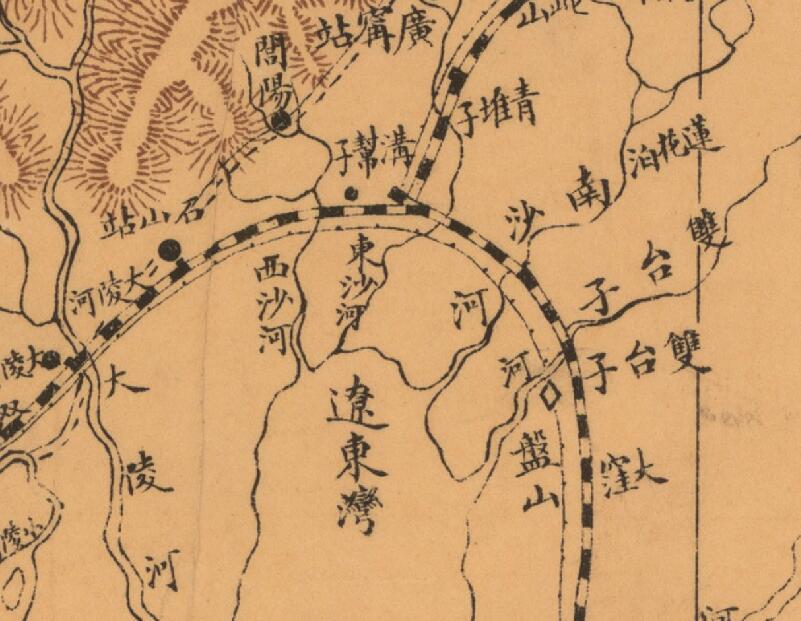 廣甯站
閭陽
青堆子
溝幫子
蓮花泊
南沙河
石山站
大陵河
西沙河
東沙河
雙台子河
雙台子
大陵河
遼東灣
盤山
大窪
大陵
小陵
河